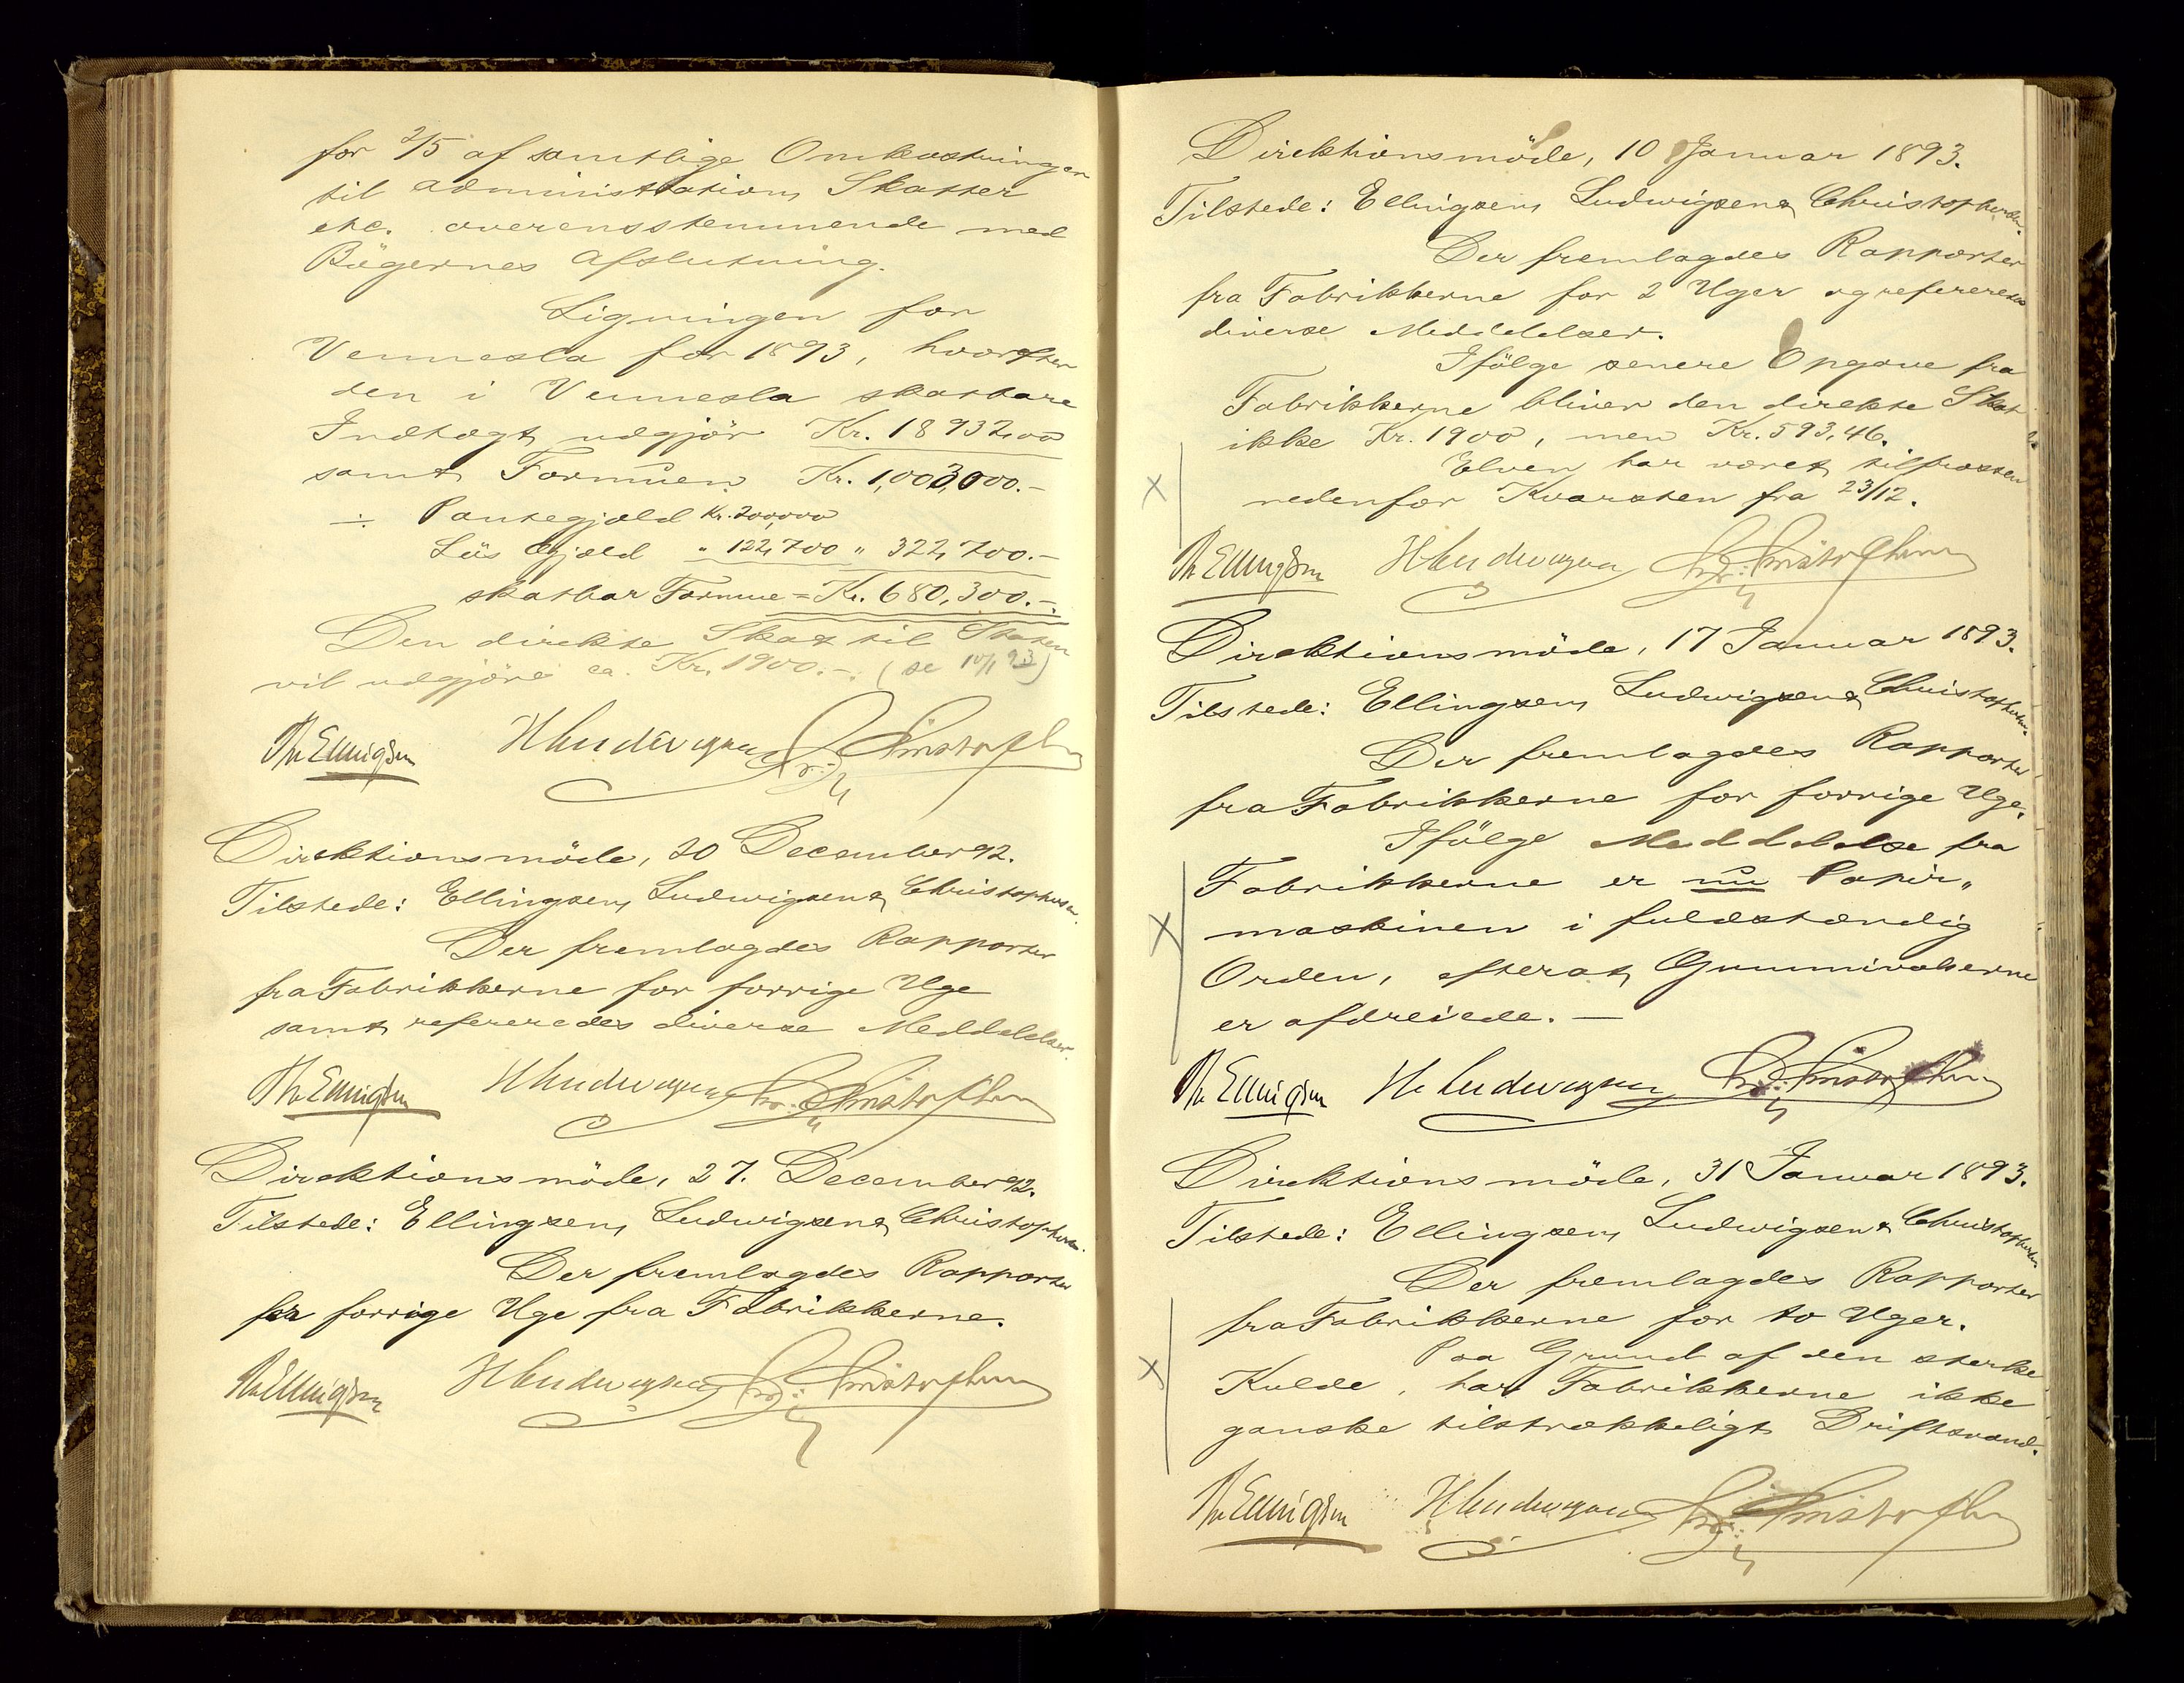 for 2/5 af samtlige Omkostninger
til Administration, Skatter
etc. overensstemmende med
Bøgernes Afslutning.
Ligningen for
Vennesla for 1893, hvorefter
den i Vennesla skatbare
Indtægt udgjør Kr. 18932,00
samt Formuen Kr. 1,003,000.-
÷ Pantegjæld Kr. 200,000
Løs Gjæld " 122,700 " 322,700.-
skatbar Formue = Kr. 680,300.-.
Den direkte Skat til Staten
vil udgjøre ca. Kr. 1900.-. (se 10/1 93)
Th Ellingsen H Ludwigsen Chr. Christophersen
Direktionsmöde, 20 December 92.
Tilstede: Ellingsen, Ludwigsen & Christophersen.
Der fremlagdes Rapporter
fra Fabrikkerne for forrige Uge
samt refereredes diverse Meddelelser.
Th Ellingsen H Ludwigsen Chr. Christophersen
Direktionsmöde, 27. December 92.
Tilstede: Ellingsen, Ludwigsen & Christophersen.
Der fremlagdes Rapporter
for forrige Uge fra Fabrikkerne.
Th Ellingsen H Ludwigsen Chr. Christophersen
Direktionsmöde, 10 Januar 1893.
Tilstede: Ellingsen, Ludwigsen & Christophersen.
Der fremlagdes Rapporter
fra Fabrikkerne for 2 Uger og refereredes
diverse Meddelelser.
Ifölge senere Opgave fra
Fabrikkerne bliver den direkte Skat
ikke Kr. 1900, men Kr. 593,46.
Elven har været tilfrossen
nedenfor Kvarsten fra 23/12.
Th Ellingsen H Ludwigsen Chr. Christophersen
Direktionsmöde, 17 Januar 1893.
Tilstede: Ellingsen, Ludwigsen & Christophersen.
Der fremlagdes Rapporter
fra Fabrikkerne for forrige Uge.
Ifölge Meddelelse fra
Fabrikkerne er nu Papir„
maskinen i fuldstændig
Orden, efterat Gummivalserne
er afdreiede. —
Th Ellingsen H Ludwigsen Chr. Christophersen
Direktionsmöde, 31 Januar 1893.
Tilstede: Ellingsen, Ludwigsen & Christophersen.
Der fremlagdes Rapporter
fra Fabrikkerne for to Uger.
Paa Grund af den sterke
Kulde, har Fabrikkerne ikke
ganske tilstrækkeligt Driftsvand.
Th Ellingsen H Ludwigsen Chr. Christophersen